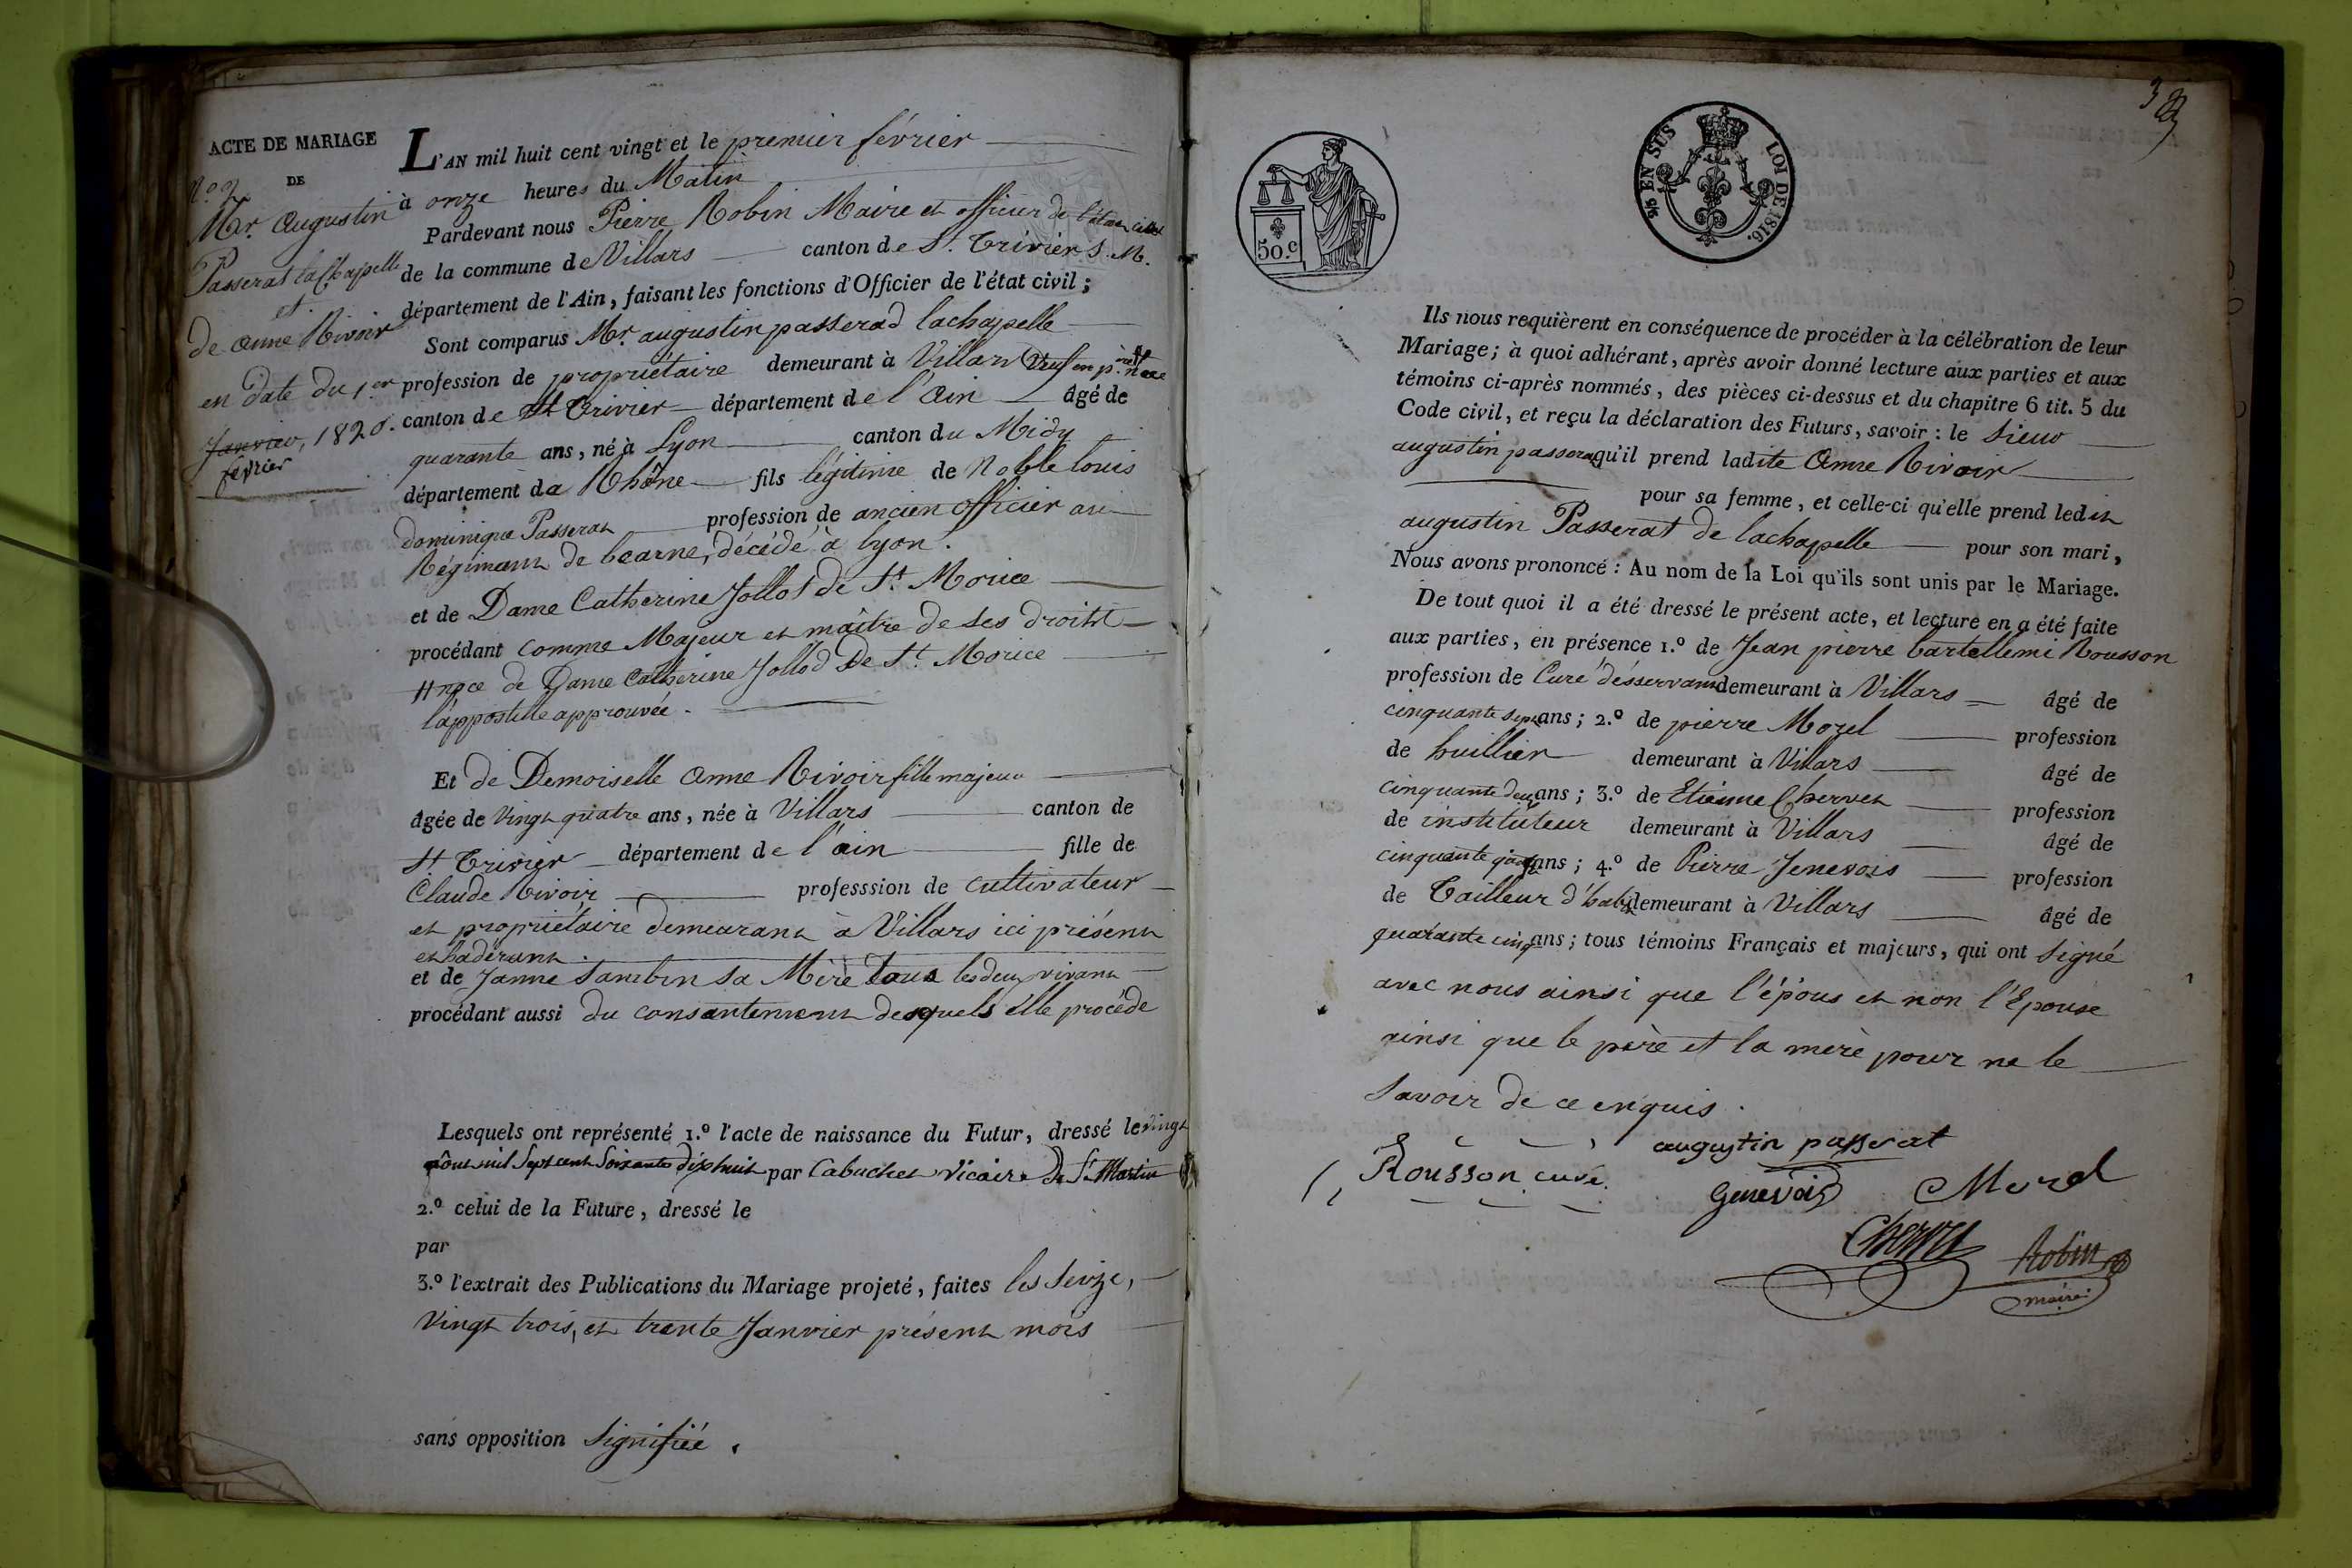 ACTE DE MARIAGE
N.º 2
DE
Mr. Augustin
Passerat lachapelle
et
de anne Rivoir
en date du 1.er
Janvier, 1820.
février
L'AN mil huit cent vingt et le premier février
à onze heures du Matin
Pardevant nous Pierre Robin Maire et officier de l'état civil
de la commune de Villars canton de St. Trivier S. M.
département de l'Ain, faisant les fonctions d'Officier de l'état civil;
Sont comparus Mr. augustin passerad lachapelle
profession de propriétaire demeurant à Villars Veuf en p.re
canton de St Trivier département de l'Ain âgé de
quarante ans, né à Lyon canton du Midy
département du Rhône fils légitime de Noble louis
dominique Passerat profession de ancien officier au
Régiment de bearne, décédé à lyon.
et de Dame Catherine Jollot de St. Morice
procédant comme Majeur et maître de ses droits
# noce de Dame Catherine Jollod De St. Morice
l'appostille approuvée.
Et de Demoiselle anne Rivoir fille majeur
âgée de Vingt quatre ans, née à Villars canton de
St. Trivier département de l'ain fille de
Claude Rivoir professsion de cultivateur
et propriétaire demeurant à Villars ici présent
et hadérant.
et de Janne Sambin sa Mère tous les deux vivant
procédant aussi du consantement desquels élle procéde
Lesquels ont représenté 1.º l'acte de naissance du Futur, dressé le vingt
août mil sept cent soixante dixhuit par Cabuchet Vicaire de St. Martin
2.º celui de la Future, dressé le
par
3.º l'extrait des Publications du Mariage projeté, faites les seize,
Vingt trois, et trente Janvier présent mois
sans opposition signifiée.
50.c
EN SUS
LOI DE 1816.
Ils nous requièrent en conséquence de procéder à la célébration de leur
Mariage; à quoi adhérant, après avoir donné lecture aux parties et aux
témoins ci-après nommés, des pièces ci-dessus et du chapitre 6 tit. 5 du
Code civil, et reçu la déclaration des Futurs, savoir: le Sieur
augustin passerat qu'il prend ladite Anne Rivoir
pour sa femme, et celle-ci qu'elle prend ledit
augustin Passerat de lachapelle pour son mari,
Nous avons prononcé: Au nom de la Loi qu'ils sont unis par le Mariage.
De tout quoi il a été dressé le présent acte, et lecture en a été faite
aux parties, en présence 1.º de Jean pierre bartellemi Rousson
profession de Curé désservant demeurant à Villars âgé de
cinquante sept ans; 2.º de pierre Morel profession
de huillier demeurant à Villars âgé de
cinquante deux ans; 3.º de Etienne Chervet profession
de instituteur demeurant à Villars âgé de
cinquante quatre ans; 4.º de Pierre Jenevois profession
de Tailleur d'habit demeurant à Villars âgé de
quarante cinq ans; tous témoins Français et majeurs, qui ont signé
avec nous ainsi que l'épous et non l'Epouse
ainsi que le père et la mère pour ne le
savoir de ce enquis.
augustin passerat
Rousson curé.
Genevois Morel
Chervet Robin
maire